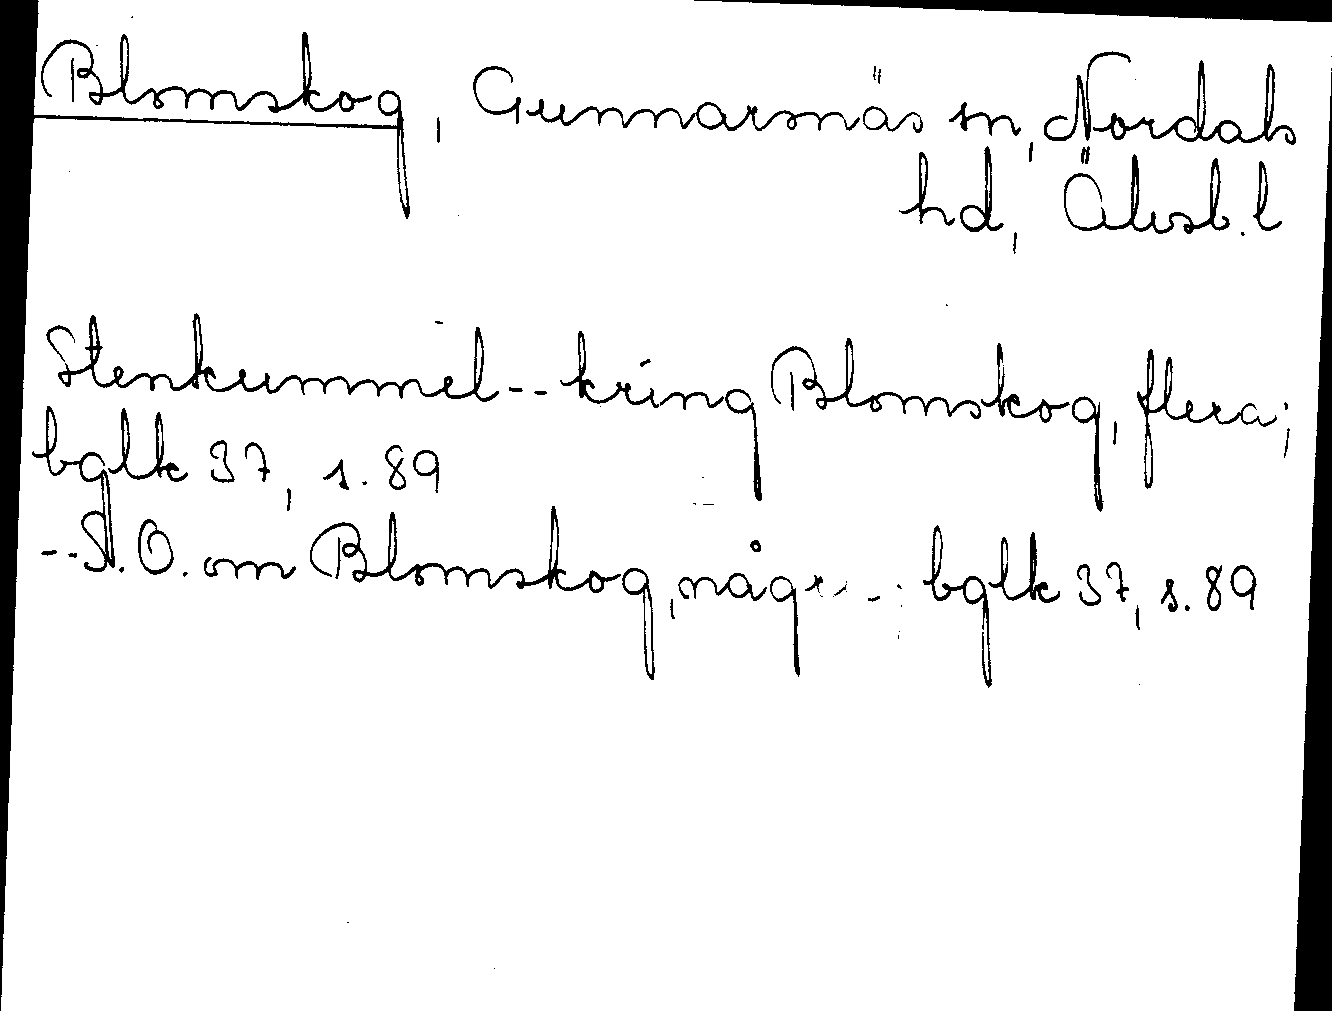 Blomskog, Gunnarsnäs sn, Nordals
hd, Älvsb. l
Stenkummel -- kring Blomskog, flera;
bglk 37, s. 89
-- S.O. om Blomskog, bglk 37, s. 89